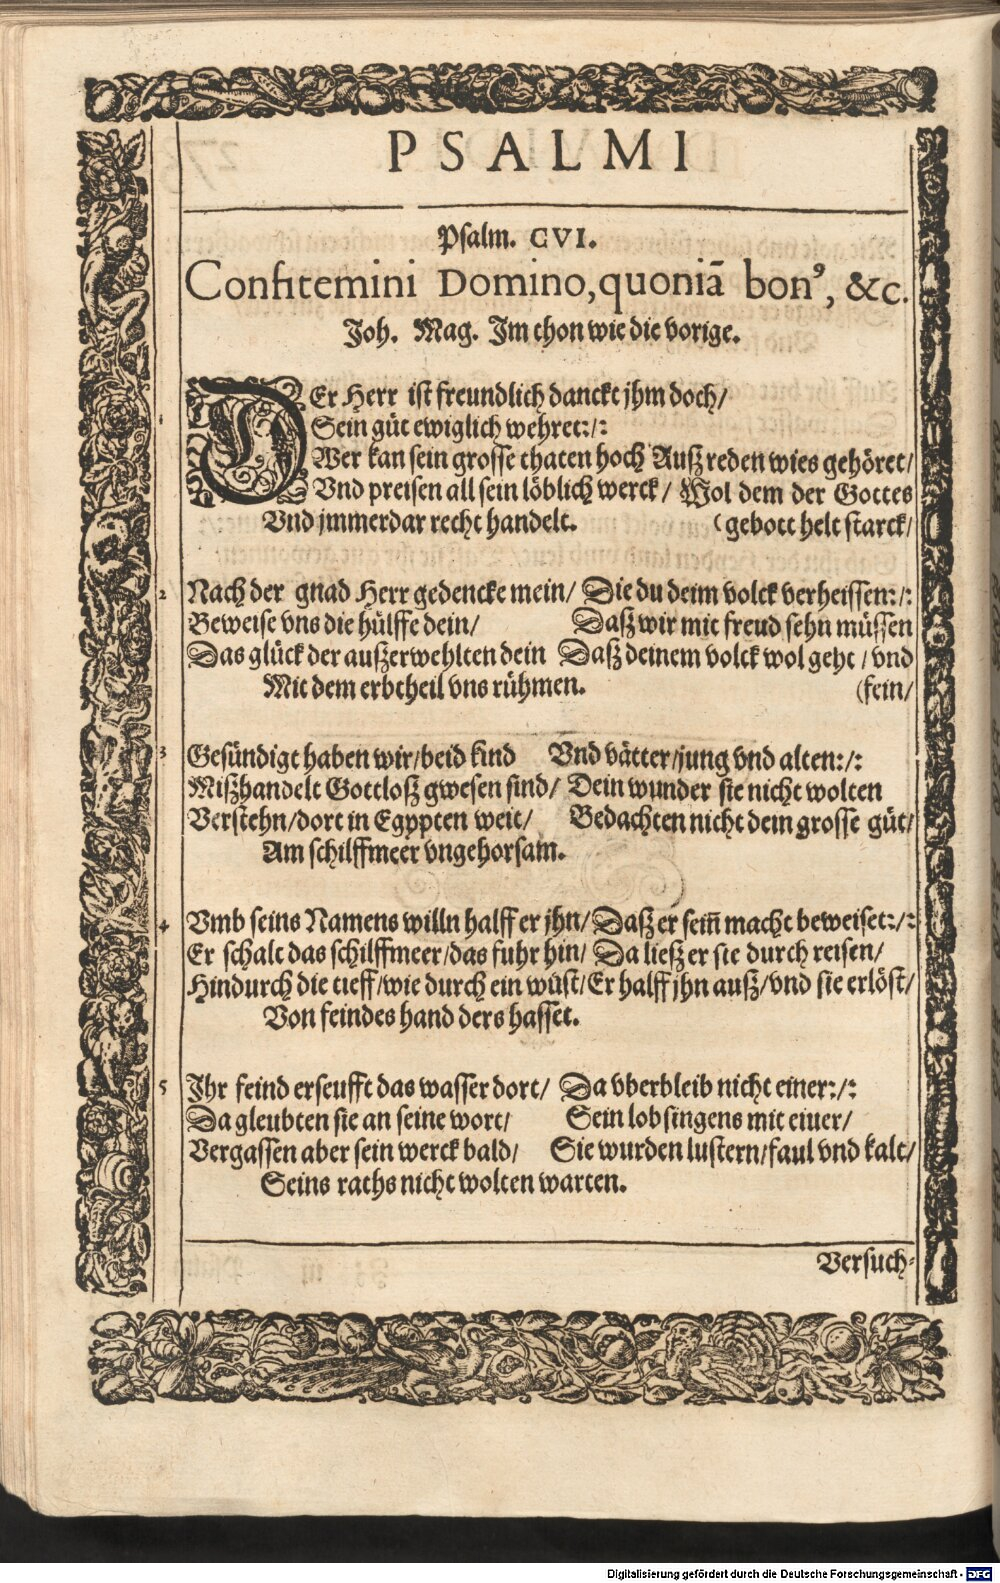 PSALMI
Psalm. CVI.
Confitemini Domino, quoniā bonꝰ, &c.
Joh. Mag. Im thon wie die vorige.
1 DEr Herr ist freundlich danckt jhm doch/
Sein güt ewiglich wehret:/:
Wer kan sein grosse thaten hoch Außreden wies gehöret/
Vnd preisen all sein löblich werck/ Wol dem der Gottes
Vnd jmmerdar recht handelt. (gebott helt starck/
2 Nach der gnad Herr gedencke mein/ Die du deim volck verheissen:/:
Beweise vns die hülffe dein/ Daß wir mit freud sehn müssen
Das glück der außerwehlten dein Daß deinem volck wol geht/ vnd
Mit dem erbtheil vns rühmen. (fein/
3 Gesündigt haben wir/beid kind Vnd vätter/jung vnd alten:/:
Mißhandelt Gottloß gwesen sind/ Dein wunder sie nicht wolten
Verstehn/dort in Egypten weit/ Bedachten nicht dein grosse güt/
Am schilffmeer vngehorsam.
4 Vmb seins Namens willn halff er jhn/ Daß er sein̄ macht beweiset:/:
Er schalt das schilffmeer/das fuhr hin/ Da ließ er sie durch reisen/
Hindurch die tieff/wie durch ein wüst/Er halff jhn auß/vnd sie erlöst/
Von feindes hand ders hasset.
5 Ihr feind erseufft das wasser dort/ Da vberbleib nicht einer:/:
Da gleubten sie an seine wort/ Sein lob singens mit eiuer/
Vergassen aber sein werck bald/ Sie wurden lustern/faul vnd kalt/
Seins raths nicht wolten warten.
Versuch-
Digitalisierung gefördert durch die Deutsche Forschungsgemeinschaft - DFG